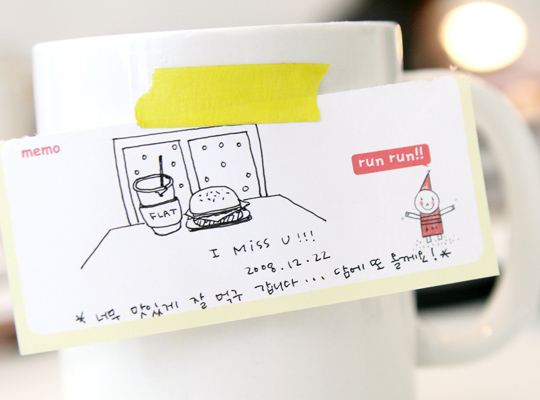 memo
run run!!
FLAT
I MISS U !!!
2008.12.22
* 너무 맛있게 잘 먹구 갑니다... 담에 또 올게요! *